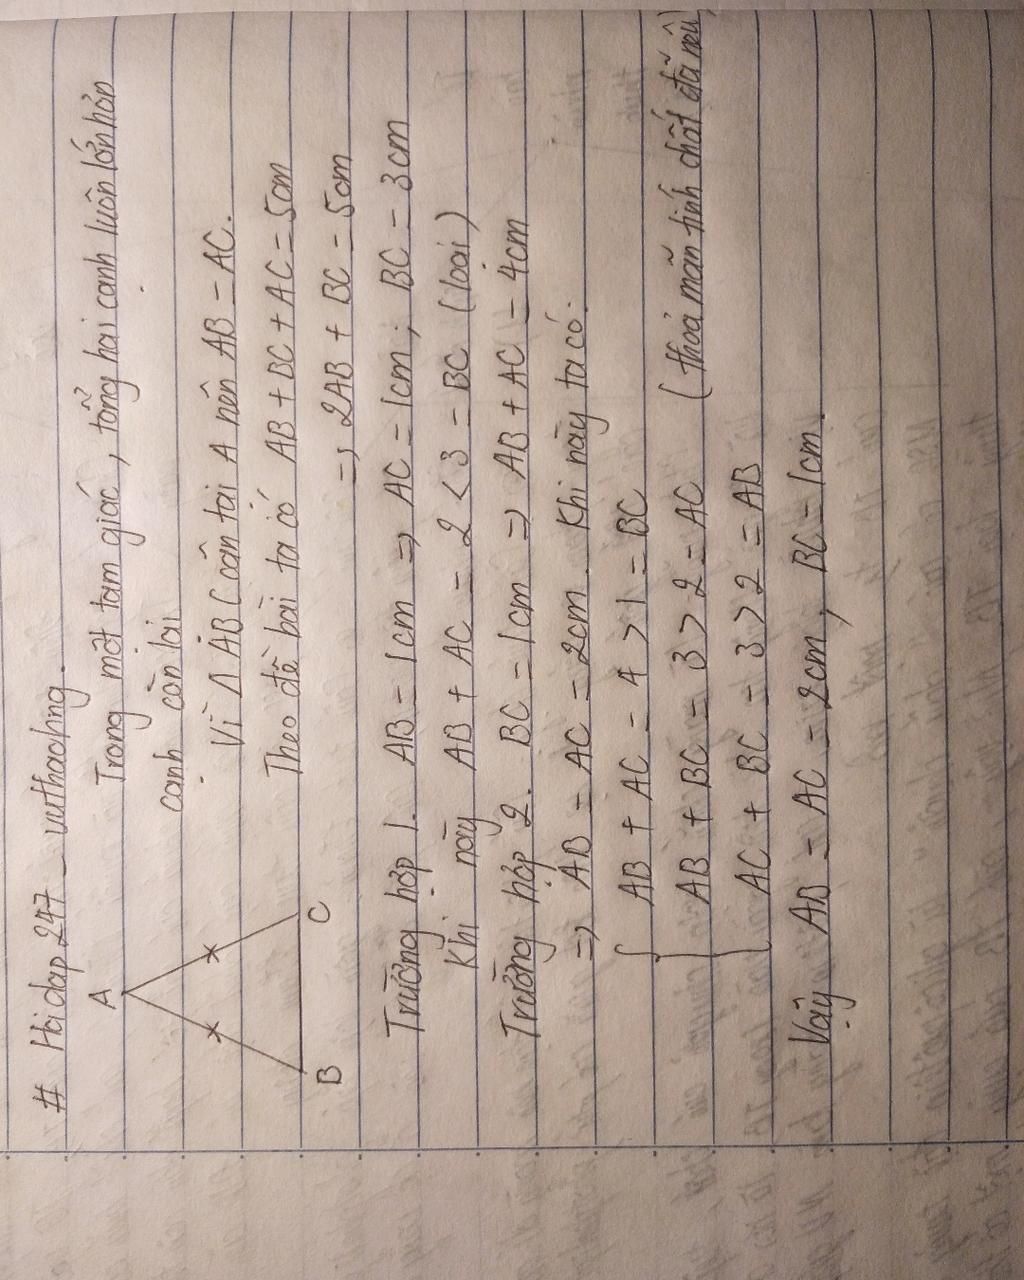 # Hoidap247 _ vuthaohng.
Trong một tam giác, tổng hai cạnh luôn lớn hơn
cạnh còn lại
A
B
C
Vì Δ ABC cân tại A nên AB = AC.
Theo đề bài ta có AB + BC + AC = 5cm
=> 2AB + BC = 5cm
Trường hợp 1. AB = 1cm => AC = 1cm; BC = 3cm
Khi này AB + AC = 2 < 3 = BC (loại)
Trường hợp 2. BC = 1cm => AB + AC = 4cm
=> AB = AC = 2cm. Khi này ta có:
AB + AC = 4 > 1 = BC
AB + BC = 3 > 2 = AC (thoả mãn tính chất đã nêu)
AC + BC = 3 > 2 = AB
Vậy AB = AC = 2cm, BC = 1cm.